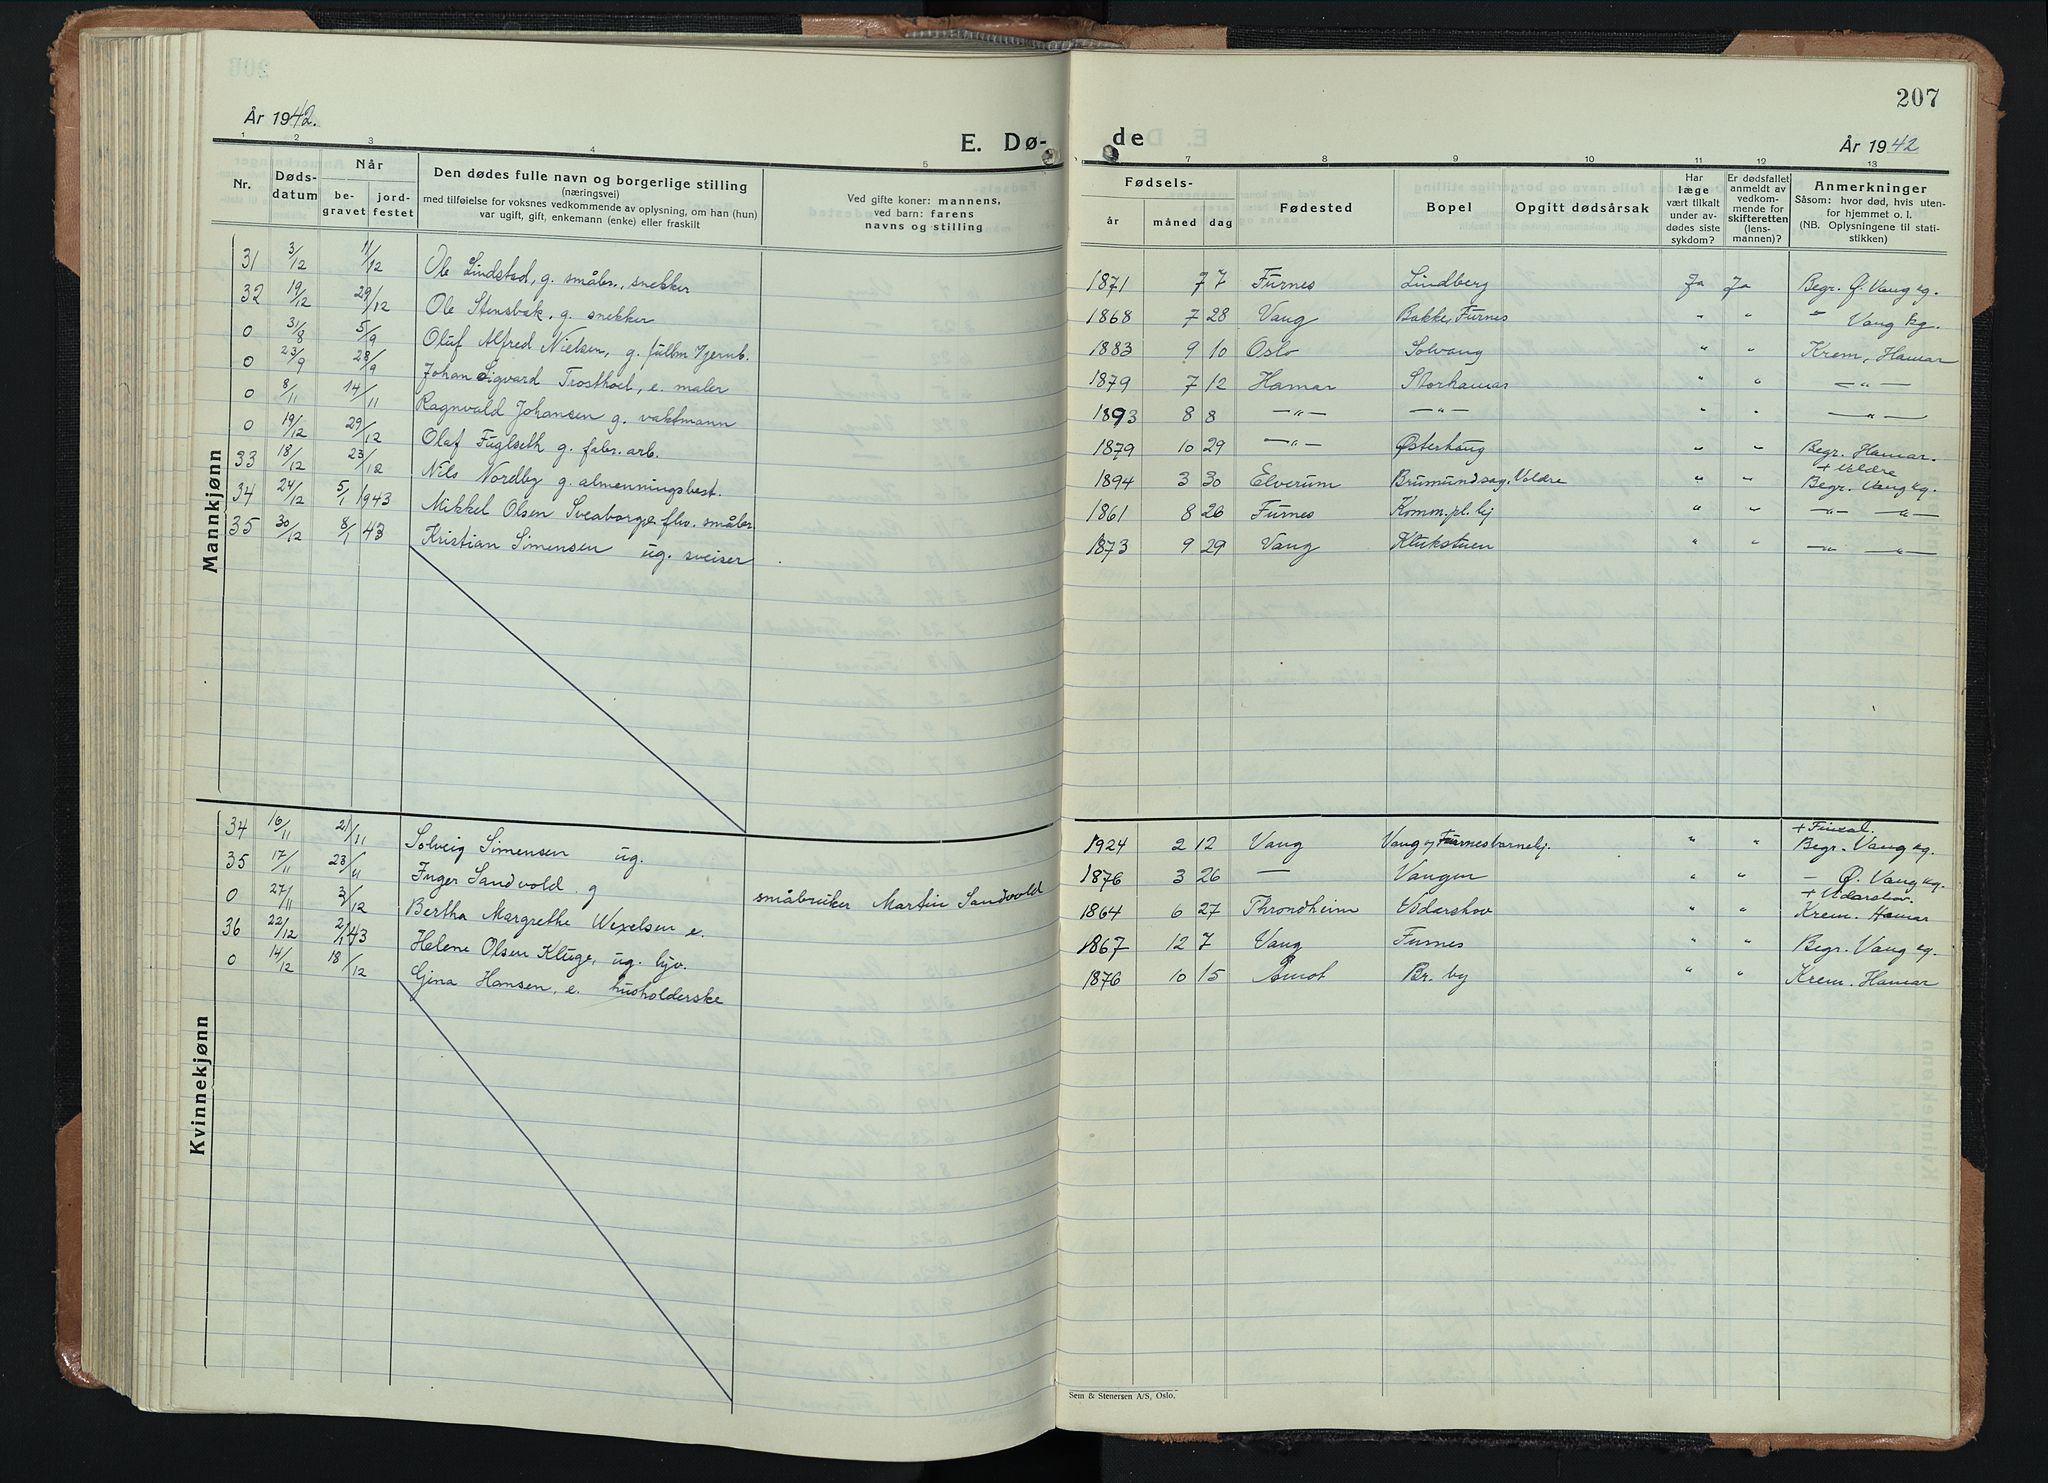 År 1942.
E. Dø-
1 2 3 4 5
Nr.
Døds-
datum
Når
be-
gravet
jord-
festet
Den dødes fulle navn og borgerlige stilling
(næringsvei)
med tilføielse for voksnes vedkommende av oplysning, om han (hun)
var ugift, gift, enkemann (enke) eller fraskilt
Ved gifte koner: mannens,
ved barn: farens
navns og stilling
Mannkjønn
31 3/12 11/12 Ole Lindstad, g. småbr., snekker
32 19/12 29/12 Ole Stensbak, g. snekker
0 31/8 5/9 Oluf Alfred Nielsen, g. fullm. v/jernb.
0 23/9 28/9 Johan Sigvard Trosthoel, e. maler
0 8/11 14/11 Ragnvald Johansen g. vaktmann
0 19/12 29/12 Olaf Fuglseth g. fabr. arb.
33 18/12 23/12 Nils Nordby g. almenningsbest.
34 24/12 5/1 1943 Mikkel Olsen Sveaborg e. fhv. småbr.
35 30/12 8/1 43 Kristian Simensen ug. sveiser
Kvinnekjønn
34 16/11 21/11 Solveig Simensen ug.
35 17/11 23/11 Inger Sandvold g småbruker Martin Sandvold
0 27/11 3/12 Bertha Margrethe Wexelsen e.
36 22/12 2/1 43 Helene Olsen Kluge, ug. hjv.
0 14/12 18/12 Gjina Hansen, e. husholderske
207
de
År 1942
7 8 9 10 11 12 13
Fødsels-
år måned dag
Fødested
Bopel
Opgitt dødsårsak
Har
læge
vært tilkalt
under av-
dødes siste
sykdom?
Er dødsfallet
anmeldt av
vedkom-
mende for
skifteretten
(lens-
mannen)?
Anmerkninger
Såsom: hvor død, hvis uten-
for hjemmet o. l.
(NB. Oplysningene til stati-
stikken)
1871 7 7 Furnes Lindberg Ja Ja Begr. Ø. Vang kg.
1868 7 28 Vang Bakke, Furnes " " " Vang kg.
1883 9 10 Oslo Solvang " " Krem. Hamar
1879 7 12 Hamar Storhamar " " — " —
1893 8 8 — " — — " — " " — " —
1879 10 29 — " — Østerhaug " " Begr. Hamar.
+ Veldre
1894 3 30 Elverum Brumundsag, Veldre " " Begr. Vang kg.
1861 8 26 Furnes Komm. pl. hj " " — " — — " —
1873 9 29 Vang Klukstuen " " — " — — " —
+ Furnes
1924 2 12 Vang Vang og Furnes barnehj. " " Begr. Vang kg.
1876 3 26 — Vangen " " — Ø. Vang kg.
+ Vidarshov.
1864 6 27 Throndheim Vidarshov " " Krem. Hamar
1867 12 7 Vang Furnes " " Begr. Vang kg.
1876 10 15 Åmot Br. by " " Krem. Hamar
Sem & Stenersen A/S, Oslo.